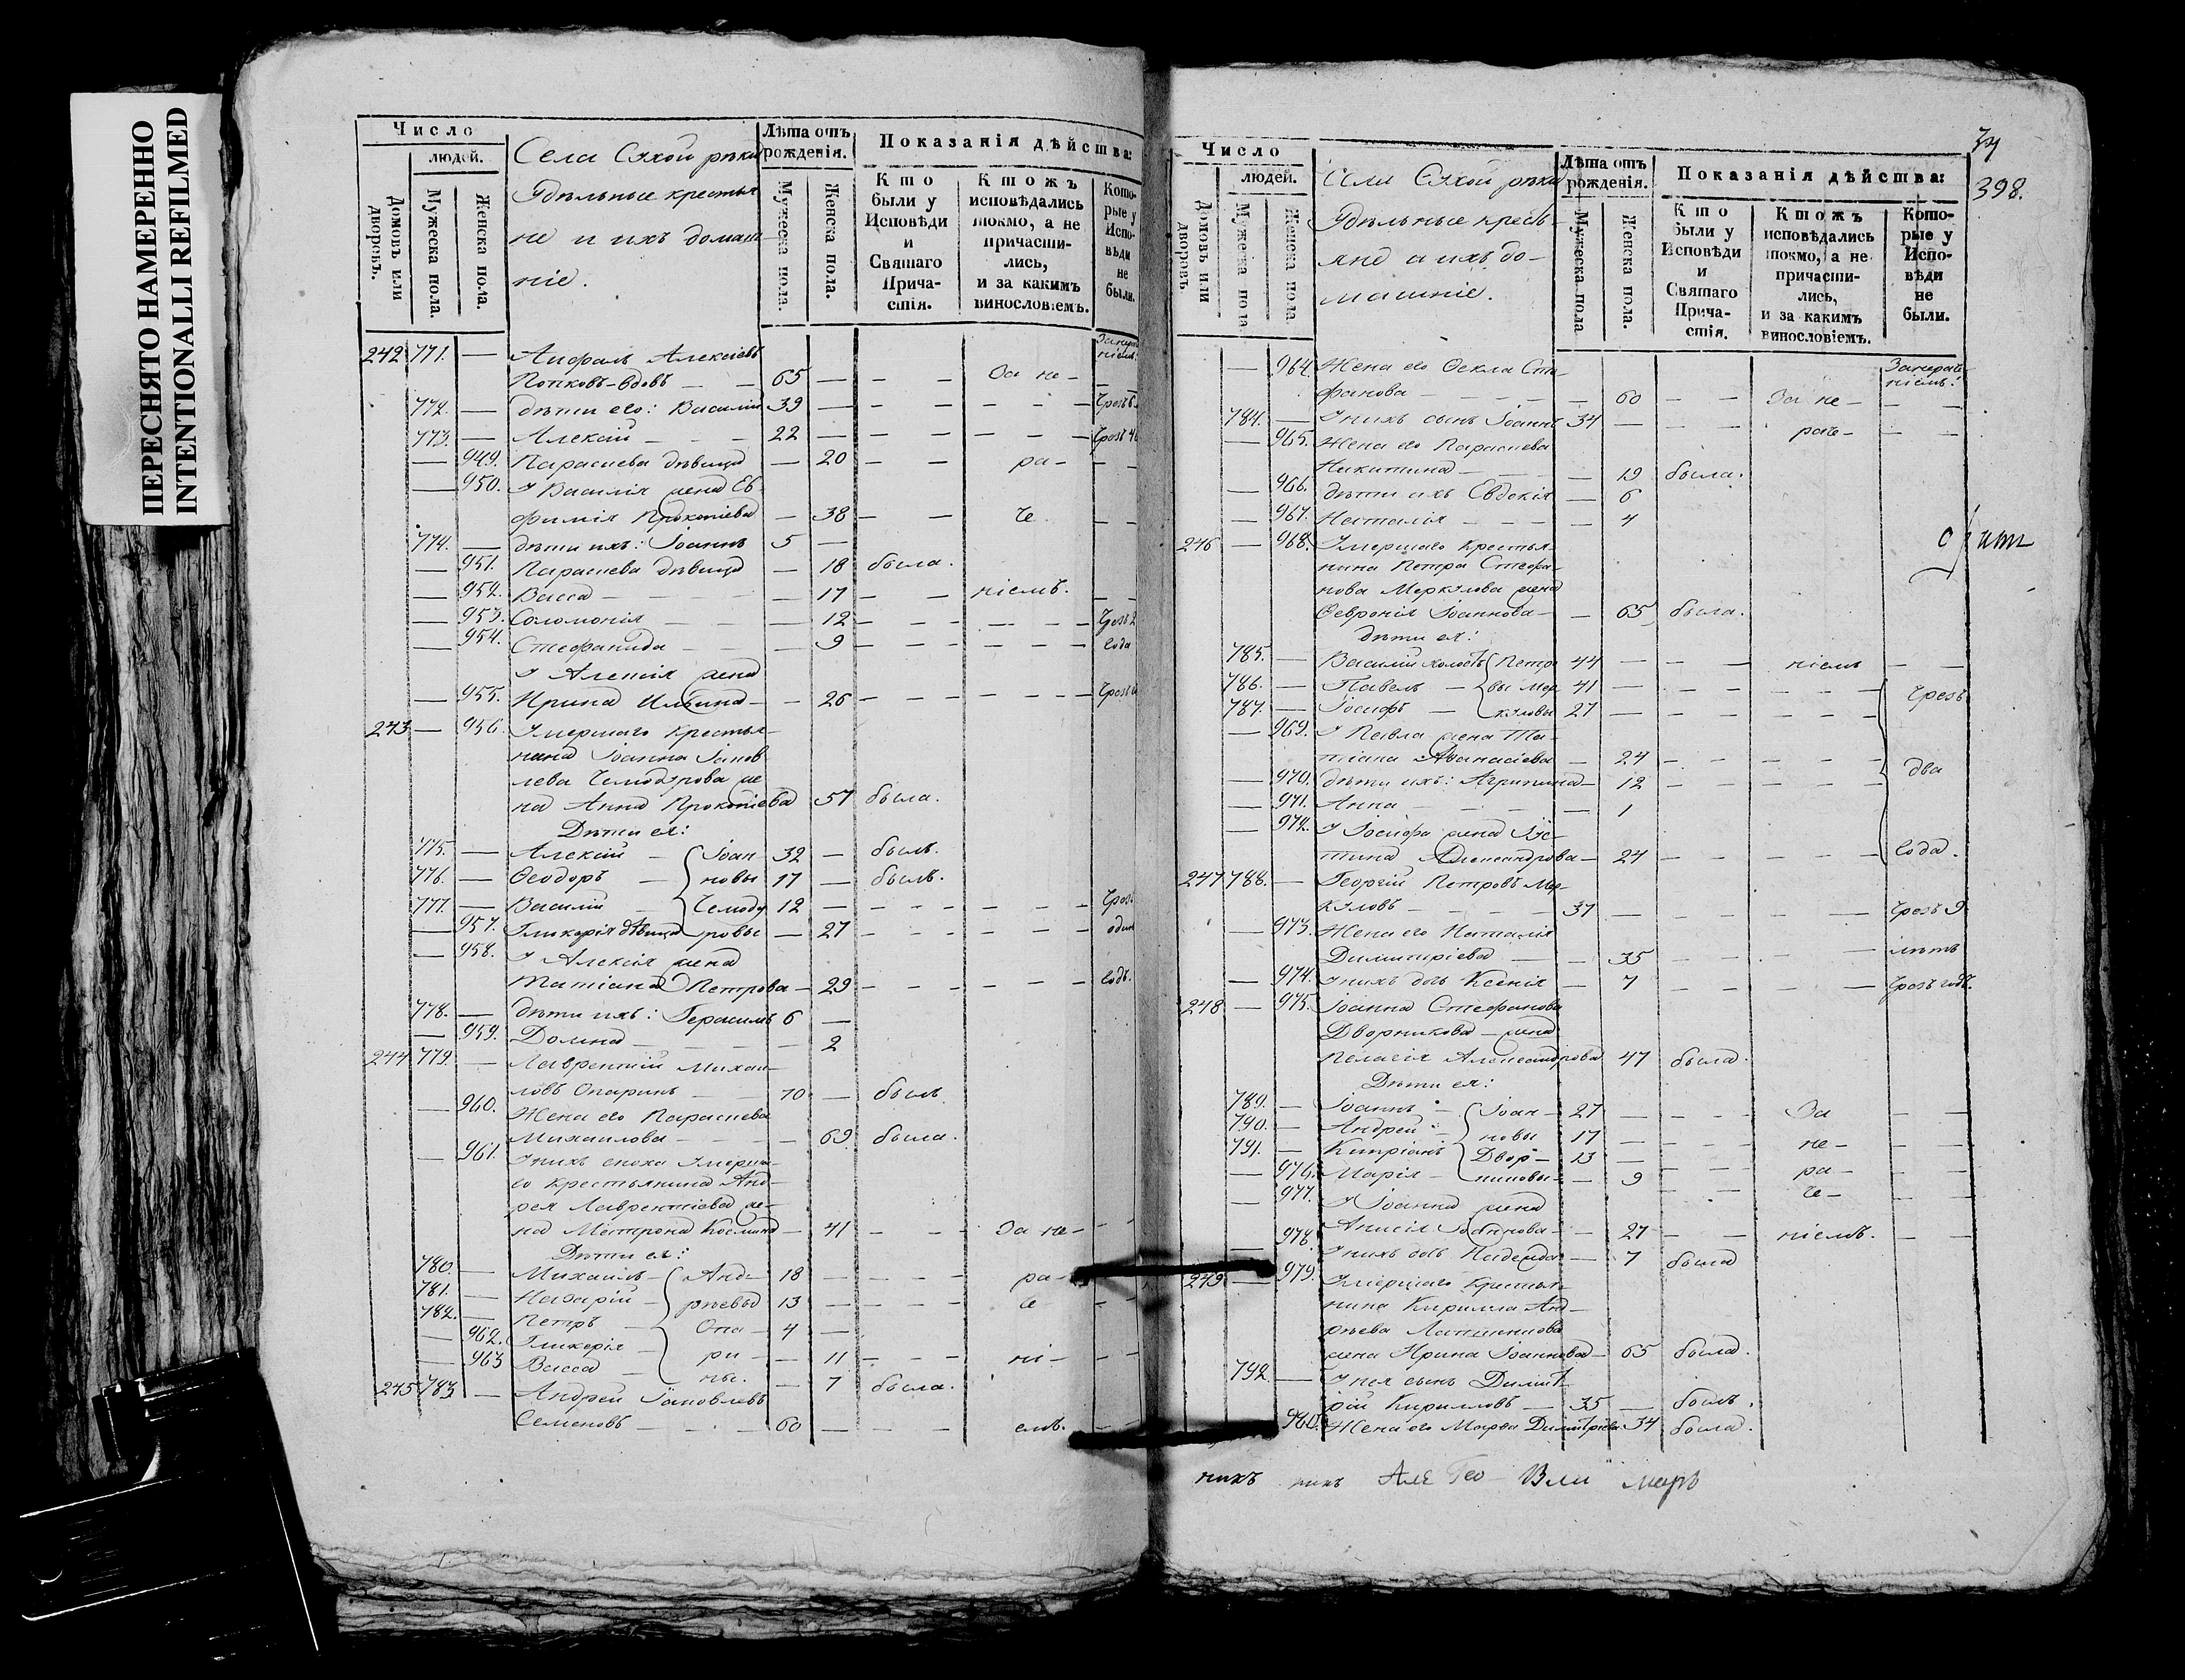 ПЕРЕСНЯТО НАМЕРЕННО
INTENTIONALLI REFILMED
Число
людей.
Домовъ или дворовъ.
Мужеска пола.
Женска пола.
Села Сухой рѣки
Удѣльные крестья
не и ихъ домаш
ніе.
Лѣта отъ рожденія.
Мужеска пола.
Женска пола.
Показанія дѣйства:
Кто были у Исповѣди и Святаго Прича-стія.
Ктожъ исповѣдались токмо, а не причасти-лись, и за какимъ винословіемъ.
Кото-рые у Испо-вѣди не были.
242 771. — Алексіевъ
Попковъ-вдовъ — — 65 — — — За не- —
772. — дѣти его: Василій 39 — — — — —
773. — Алексій — — — 22 — — — — —
— 949. Параскева дѣвица — 20 — — ра- — —
— 950. У Василія жена Ев
фимія Прокопіева — 38 — — че — —
774. — дѣти ихъ: Іоаннъ 5 —
— 951. Параскева дѣвица — 18 была.
— 952. Васса — — — 17 — — ніемъ. — —
— 953. Соломонія — — — 12 — — — — —
— 954. Стефанида — — — 9 — — — — — года
У Алексія жена
— 955. Ирина Ильина — — 26 — — — — —
243 — 956. Умершаго крестья-
нина Іоанна Іаков
лева Чемодурова же
на Анна Прокопіева 57 была.
Дѣти ея:
775. — Алексій — Іоан 32 — былъ.
776. — Ѳеодоръ — новы 17 — былъ.
777. — Василій — Чемоду 12 — — — — — Чрезъ
— 957. Гликерія дѣвица ровы — 27 — — — — — один
— 958. У Алексія жена
Татіана Петрова — 29 — — — — — годъ.
778. — дѣти ихъ: Герасимъ 6 —
— 959. Домна — — — 2
244 779. — Лаврентій Михаи-
ловъ Опаринъ — — 70 — былъ
— 960. Жена его Параскева
Михаилова — — — 69 была.
— 961. У нихъ сноха умерша-
го крестьянина Анд-
рея Лаврентіева же-
на Матрона Космина — 41 — — За не- — —
Дѣти ея:
780. — Михаилъ — Анд- 18 — — — ра-
781. — Назарій — рѣевы 13 — — — че — —
782. — Петръ — Опа- 4 —
— 962. Гликерія ри- — 11 — — — ні- — —
— 963 Васса ны. — 7 была.
245 783 — Андрей Іаковлевъ
Семеновъ — — — 60 — — — емъ. — —
398.
Число
людей.
Домовъ или дворовъ
Мужеска пола
Женска пола.
Села Сухой рѣки
Удѣльные кресть-
яне и ихъ до-
машніе.
Лѣта отъ рожденія.
Мужеска пола
Женска пола.
Показанія дѣйства:
Кто были у Исповѣди и Святаго Прича-стія.
Ктожъ исповѣдались токмо, а не причасти-лись, и за какимъ винословіемъ.
Кото-рые у Испо-вѣди не были.
— 964. Жена его Ѳекла Сте-
фанова — — — — 60 — — За не- — —
784. — У нихъ сынъ Іоаннъ 34 — — — раче- — —
— 965. Жена его Параскева
Никитина — — — 19 была.
— 966. дѣти ихъ Евдокія — 6
— 967. Наталія — — — 4
246 — 968. Умершаго крестья-
нина Петра Стефа-
нова Меркулова жена
Ѳевронія Іоаннова — — 65 была.
дѣти ея:
785. — Василій холостъ Петро 44 — — — ніемъ — —
786. — Павелъ — вы Мер 41 — — — — — Чрезъ
787. — Іосифъ — куловы 27 — — — — —
— 969. У Павла жена Та-
тіана Аѳанасіева — 24 — — — — — два
— 970. дѣти ихъ: Агрипина — 12 — — — — —
— 971. Анна — — — 1
— 972. У Іосифа жена Іус-
тина Александрова — 24 — — — — — года.
247 788. — Георгій Петровъ Мер-
куловъ — — — — 37 — — — — — Чрезъ 9
— 973. Жена его Наталія
Димитріева — — 35 — лѣтъ
— 974. У нихъ дочь Ксенія — 7 — — — — — Чрезъ годъ.
248 — 975. Іоанна Стефанова
Дворникова — жена
Пелагія Александрова 47 была.
Дѣти ея:
789. — Іоаннъ — Іоан- 27 — — — За — —
790. — Андрей — новы 17 — — — не- — —
791. — Кипріанъ Двор- 13 — — — ра- — —
— 976. Марія — никовы — 9 — — че- — —
— 977. У Іоанна жена
Анисія Іоаннова — — 27 — — ніемъ. — —
— 978. У нихъ дочь Надежда — 7 была
249 — 979. Умершаго крестья-
нина Кирилла Анд-
рѣева
жена Ирина Іоаннова — 65 была.
792. — У нея сынъ Димит
рій Кирилловъ — 35 — былъ.
980. Жена его Марѳа Димитріева 34 была.
нихъ нихъ Але Гео Вли марѳ